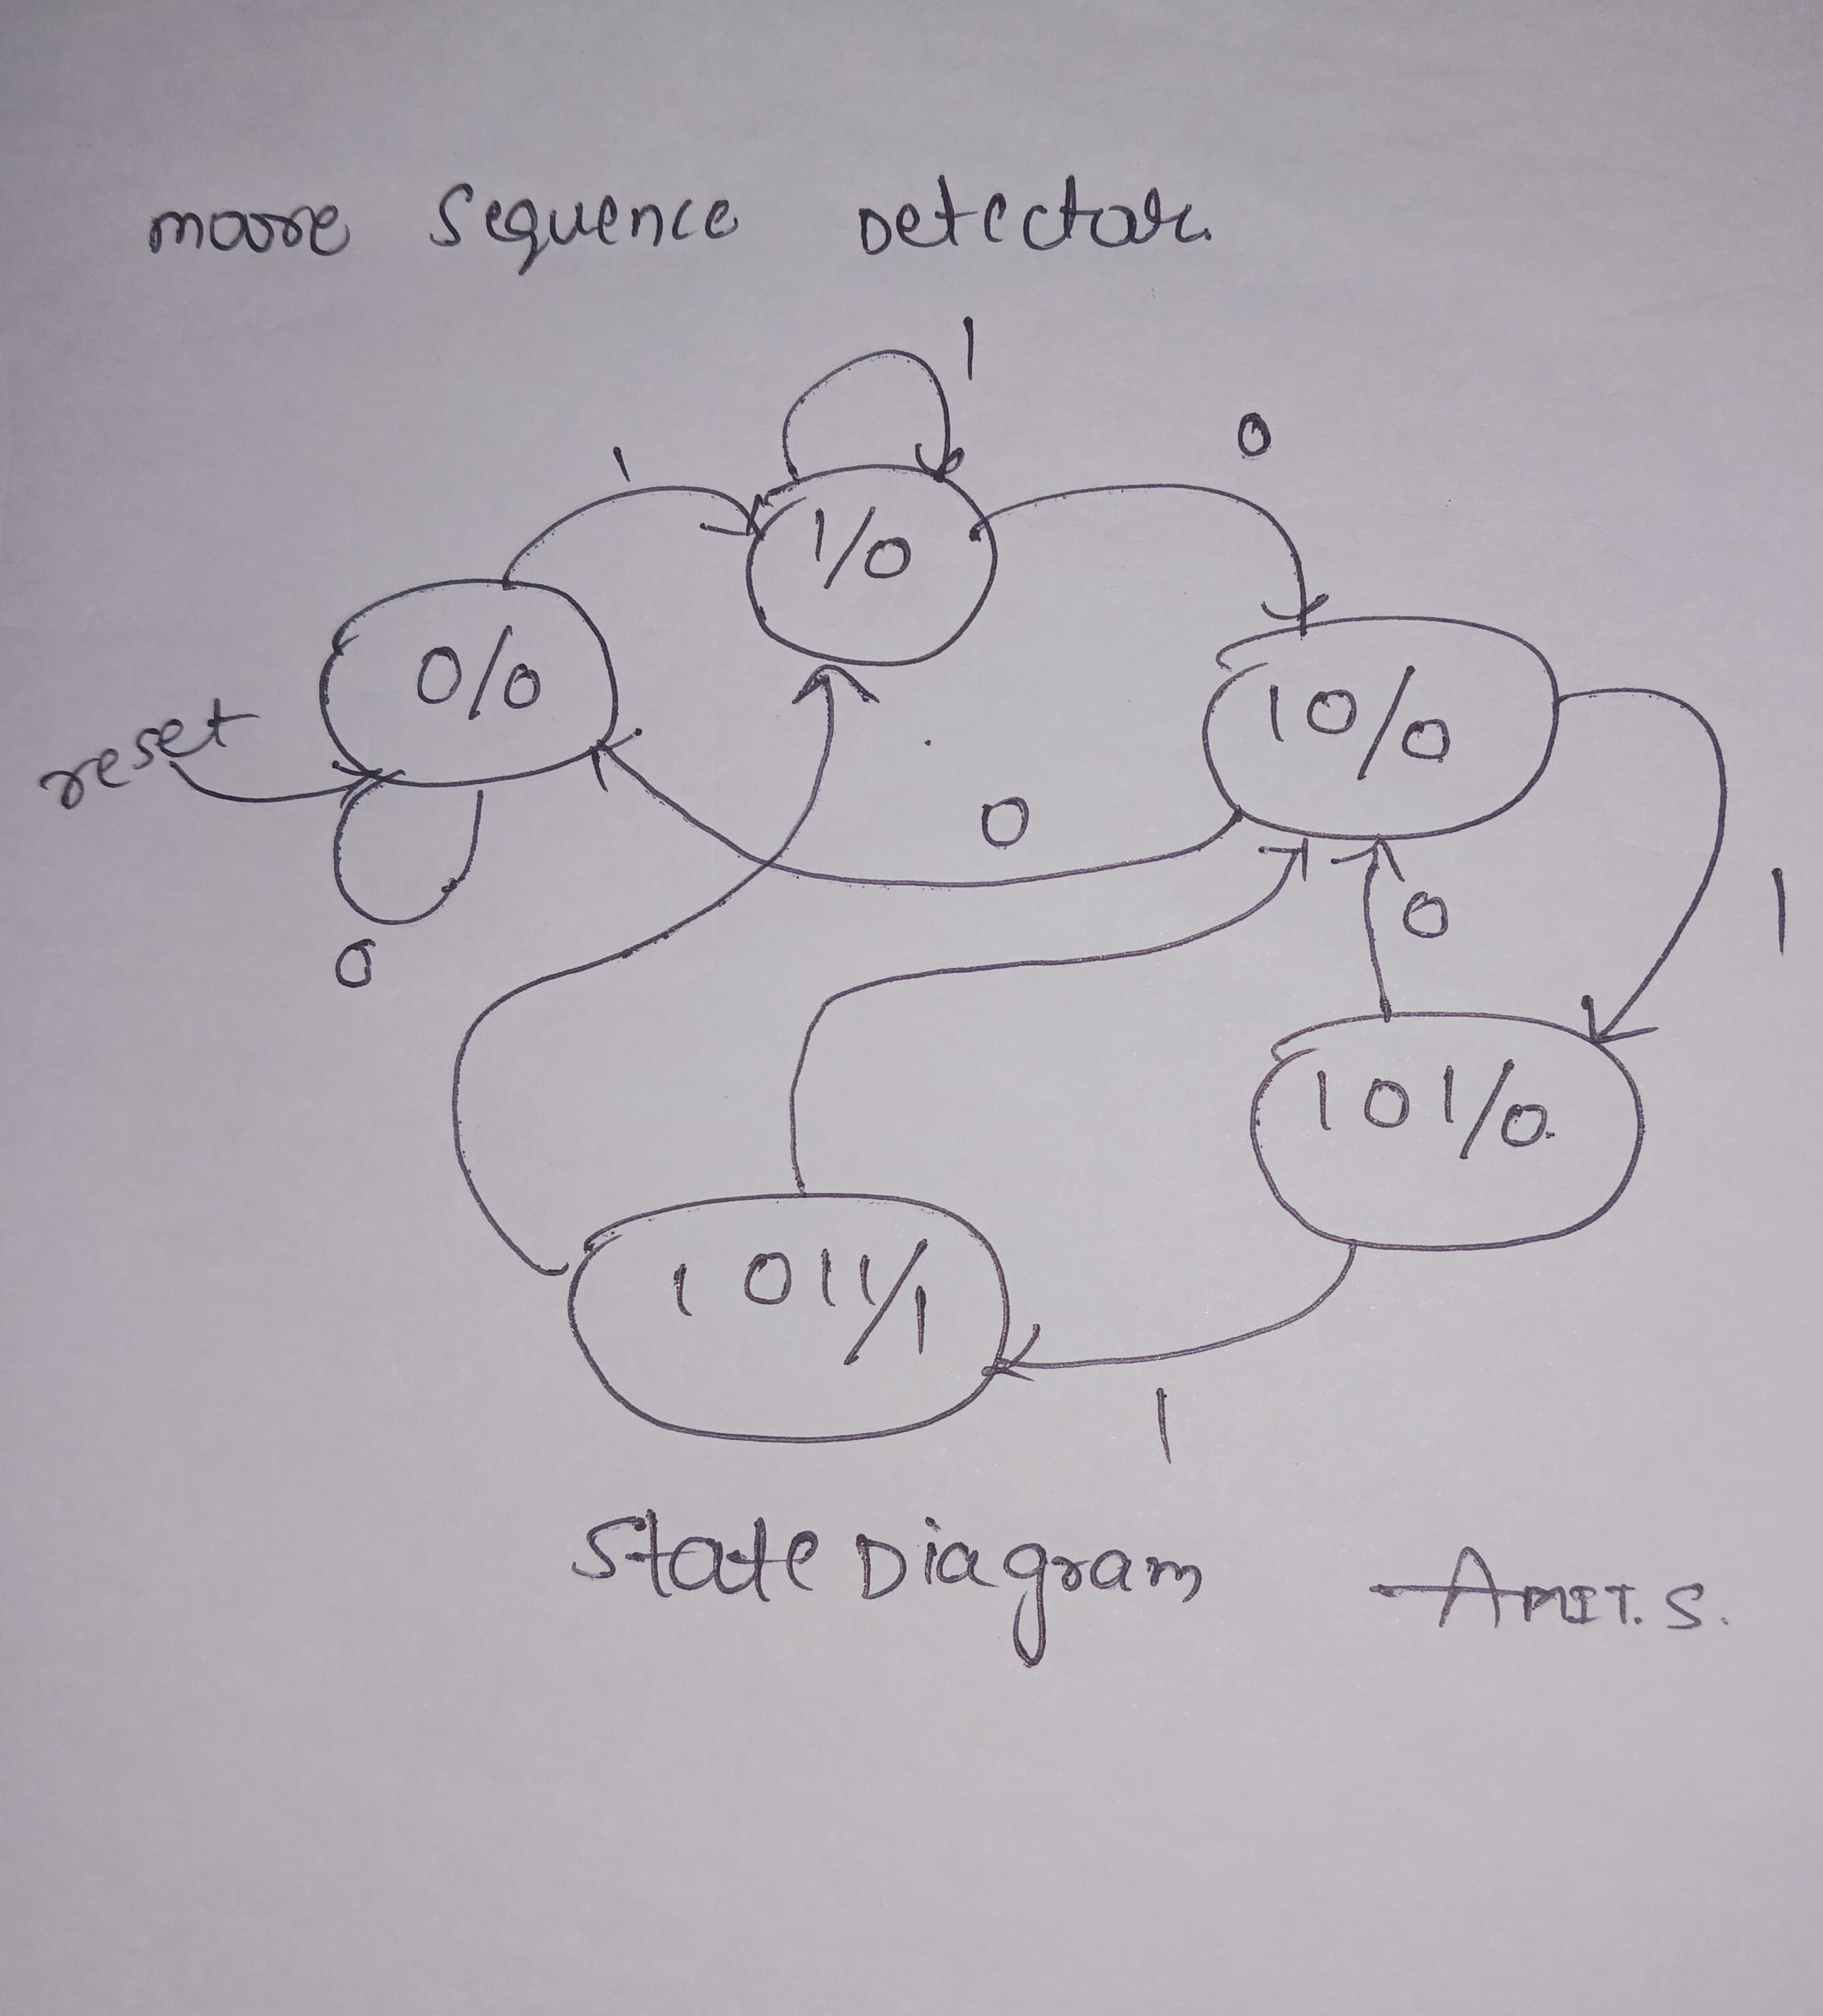 moore Sequence Detector
1
0
1
1/0
0/0
10/0
reset
0
0
1
0
101/0
1011/1
1
State Diagram
-AMIT. S.